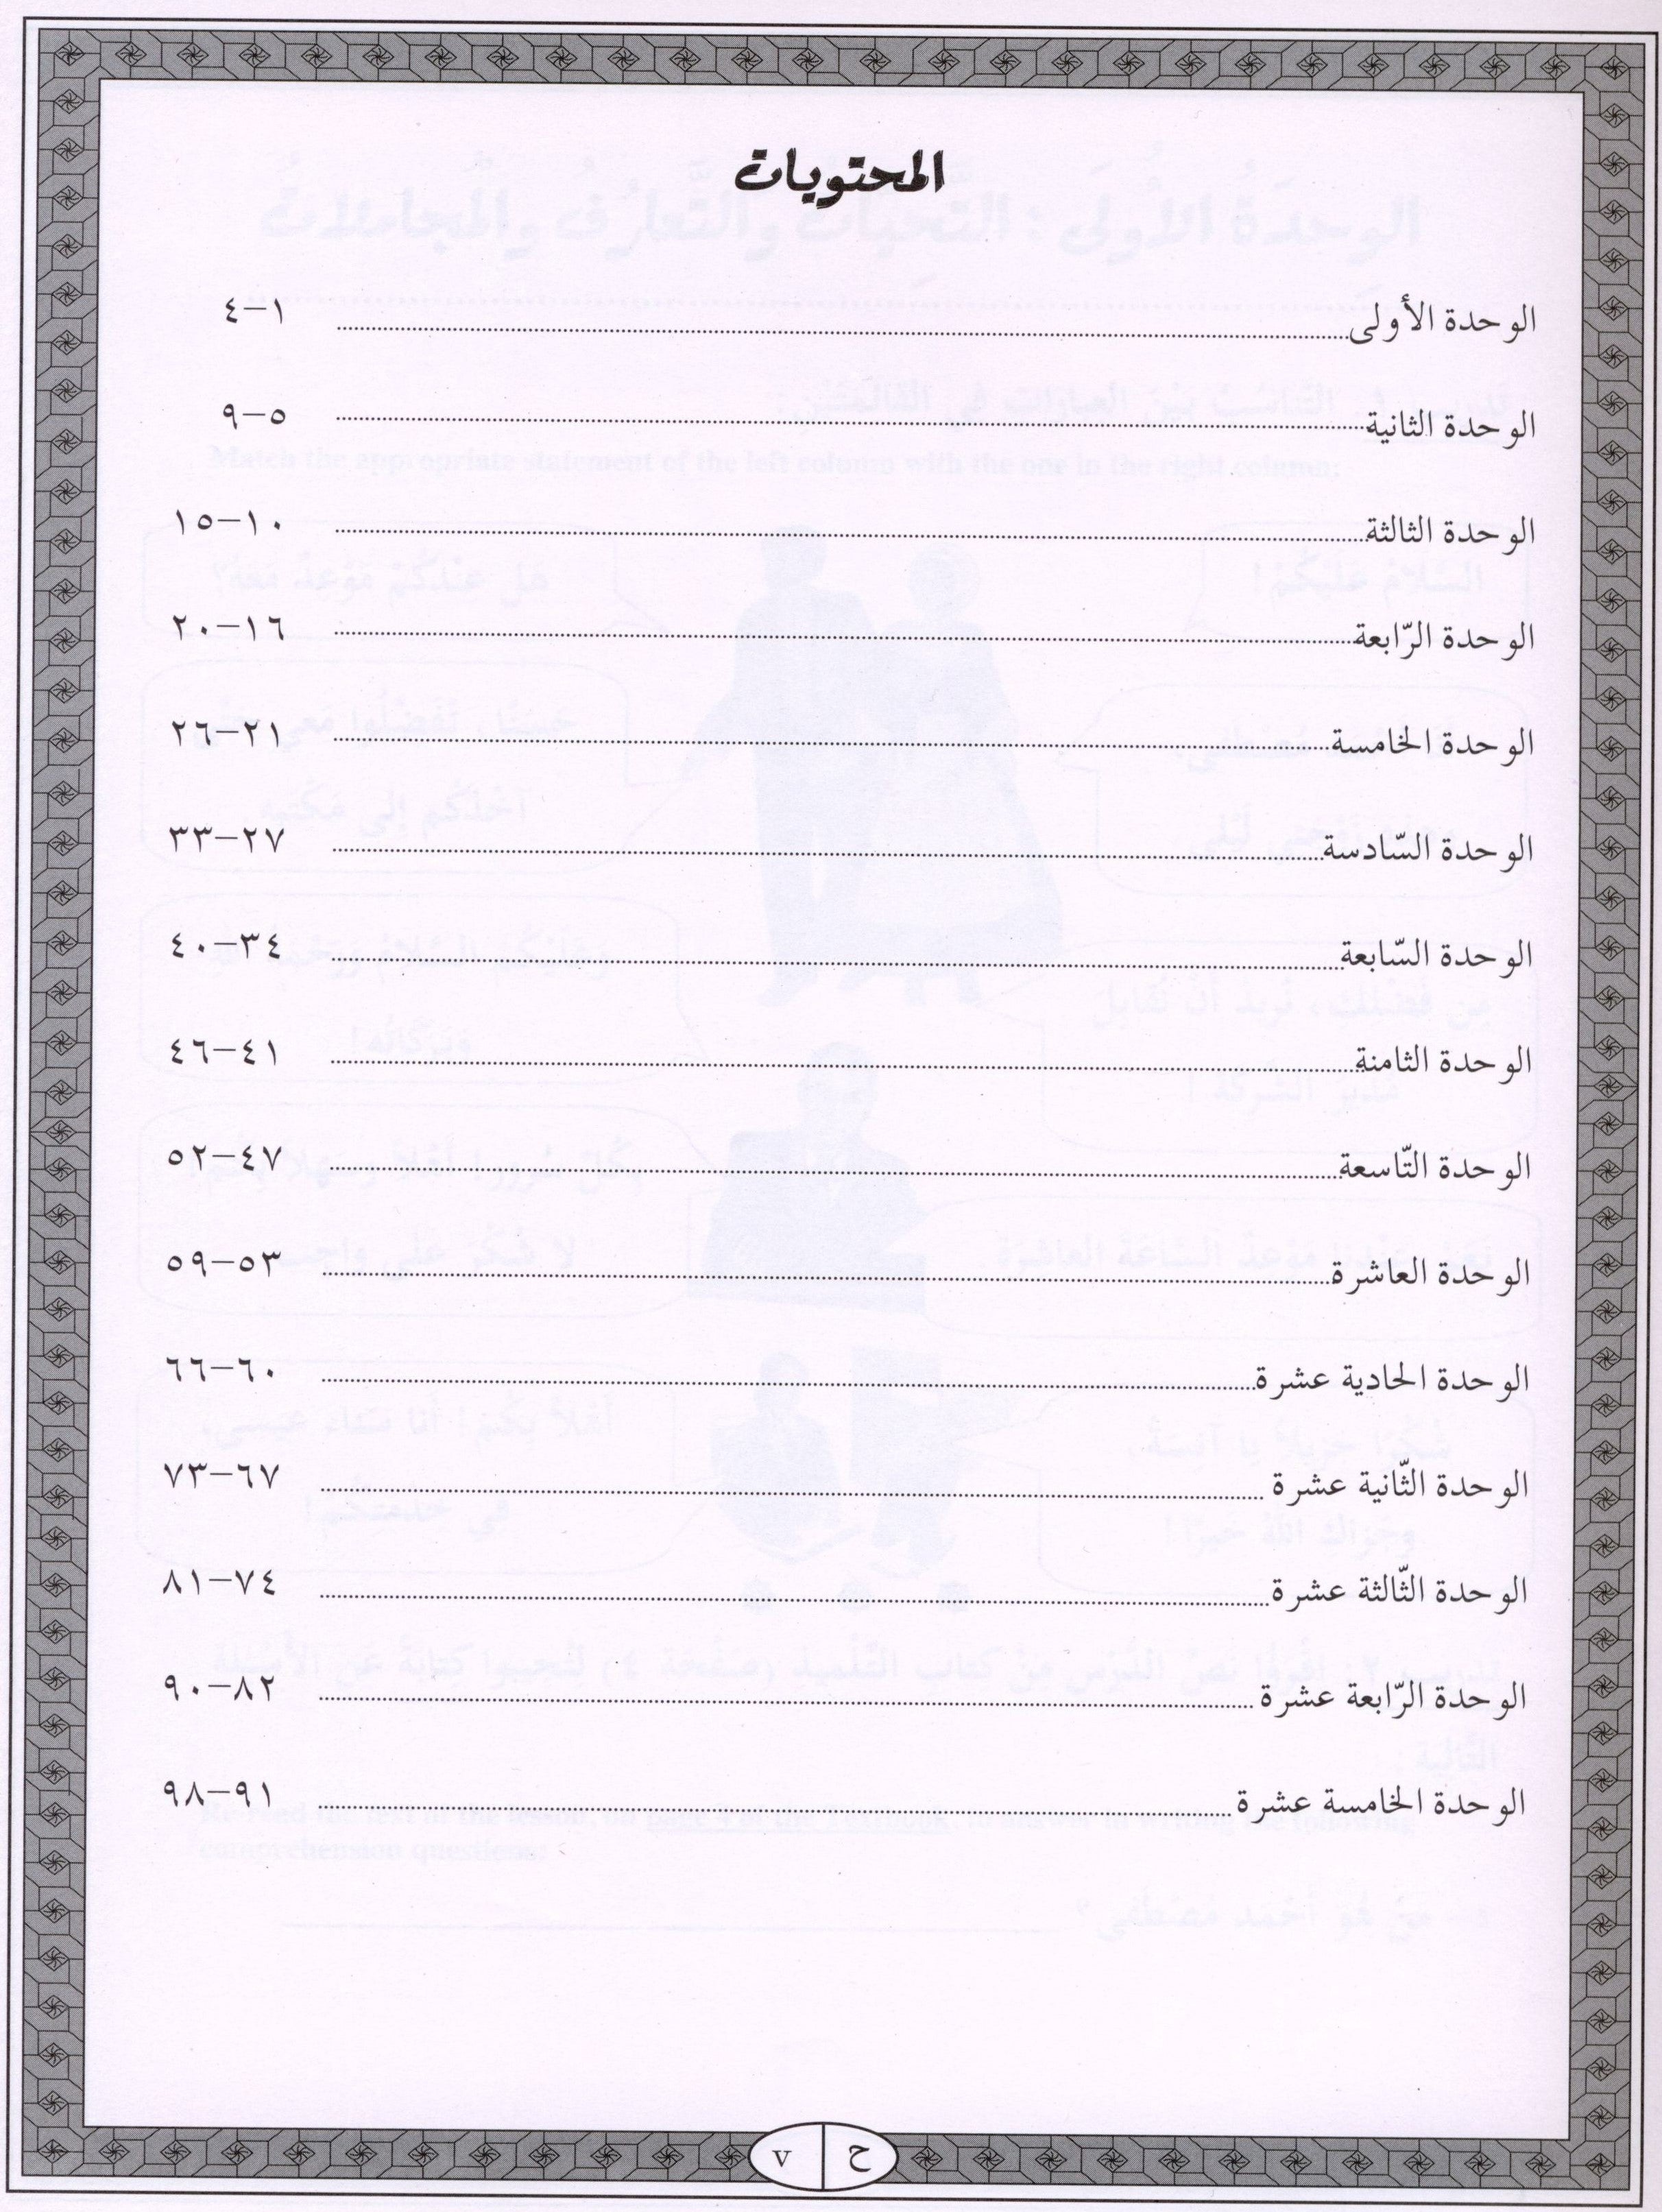 المحتويات
الوحدة الأولى ........ ١–٤
الوحدة الثانية ........ ٥–٩
الوحدة الثالثة ........ ١٠–١٥
الوحدة الرّابعة ........ ١٦–٢٠
الوحدة الخامسة ........ ٢١–٢٦
الوحدة السّادسة ........ ٢٧–٣٣
الوحدة السّابعة ........ ٣٤–٤٠
الوحدة الثامنة ........ ٤١–٤٦
الوحدة التّاسعة ........ ٤٧–٥٢
الوحدة العاشرة ........ ٥٣–٥٩
الوحدة الحادية عشرة ........ ٦٠–٦٦
الوحدة الثّانية عشرة ........ ٦٧–٧٣
الوحدة الثّالثة عشرة ........ ٧٤–٨١
الوحدة الرّابعة عشرة ........ ٨٢–٩٠
الوحدة الخامسة عشرة ........ ٩١–٩٨
ح v